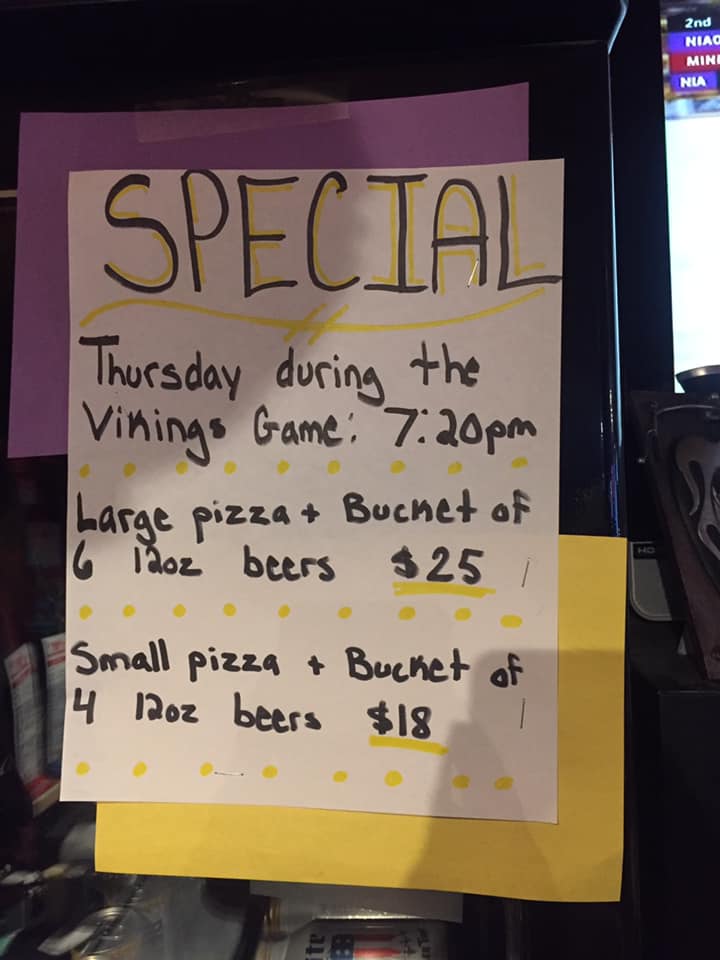 SPECIAL
Thursday during the
Vikings Game: 7:20pm
Large pizza + Bucket of
6 12oz beers $25
Small pizza + Bucket of
4 12oz beers $18
2nd
NIA